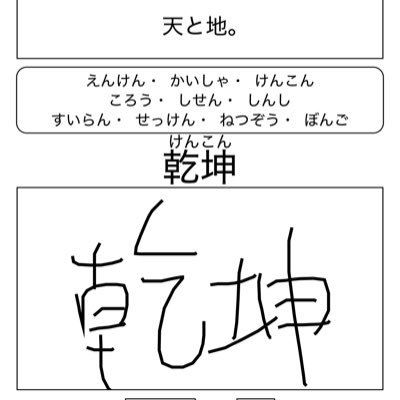 天と地。
えんけん・ かいしゃ・ けんこん
ころう・ しせん・ しんし
すいらん・ せっけん・ ねつぞう・ ぼんご
けんこん
乾坤
乾坤